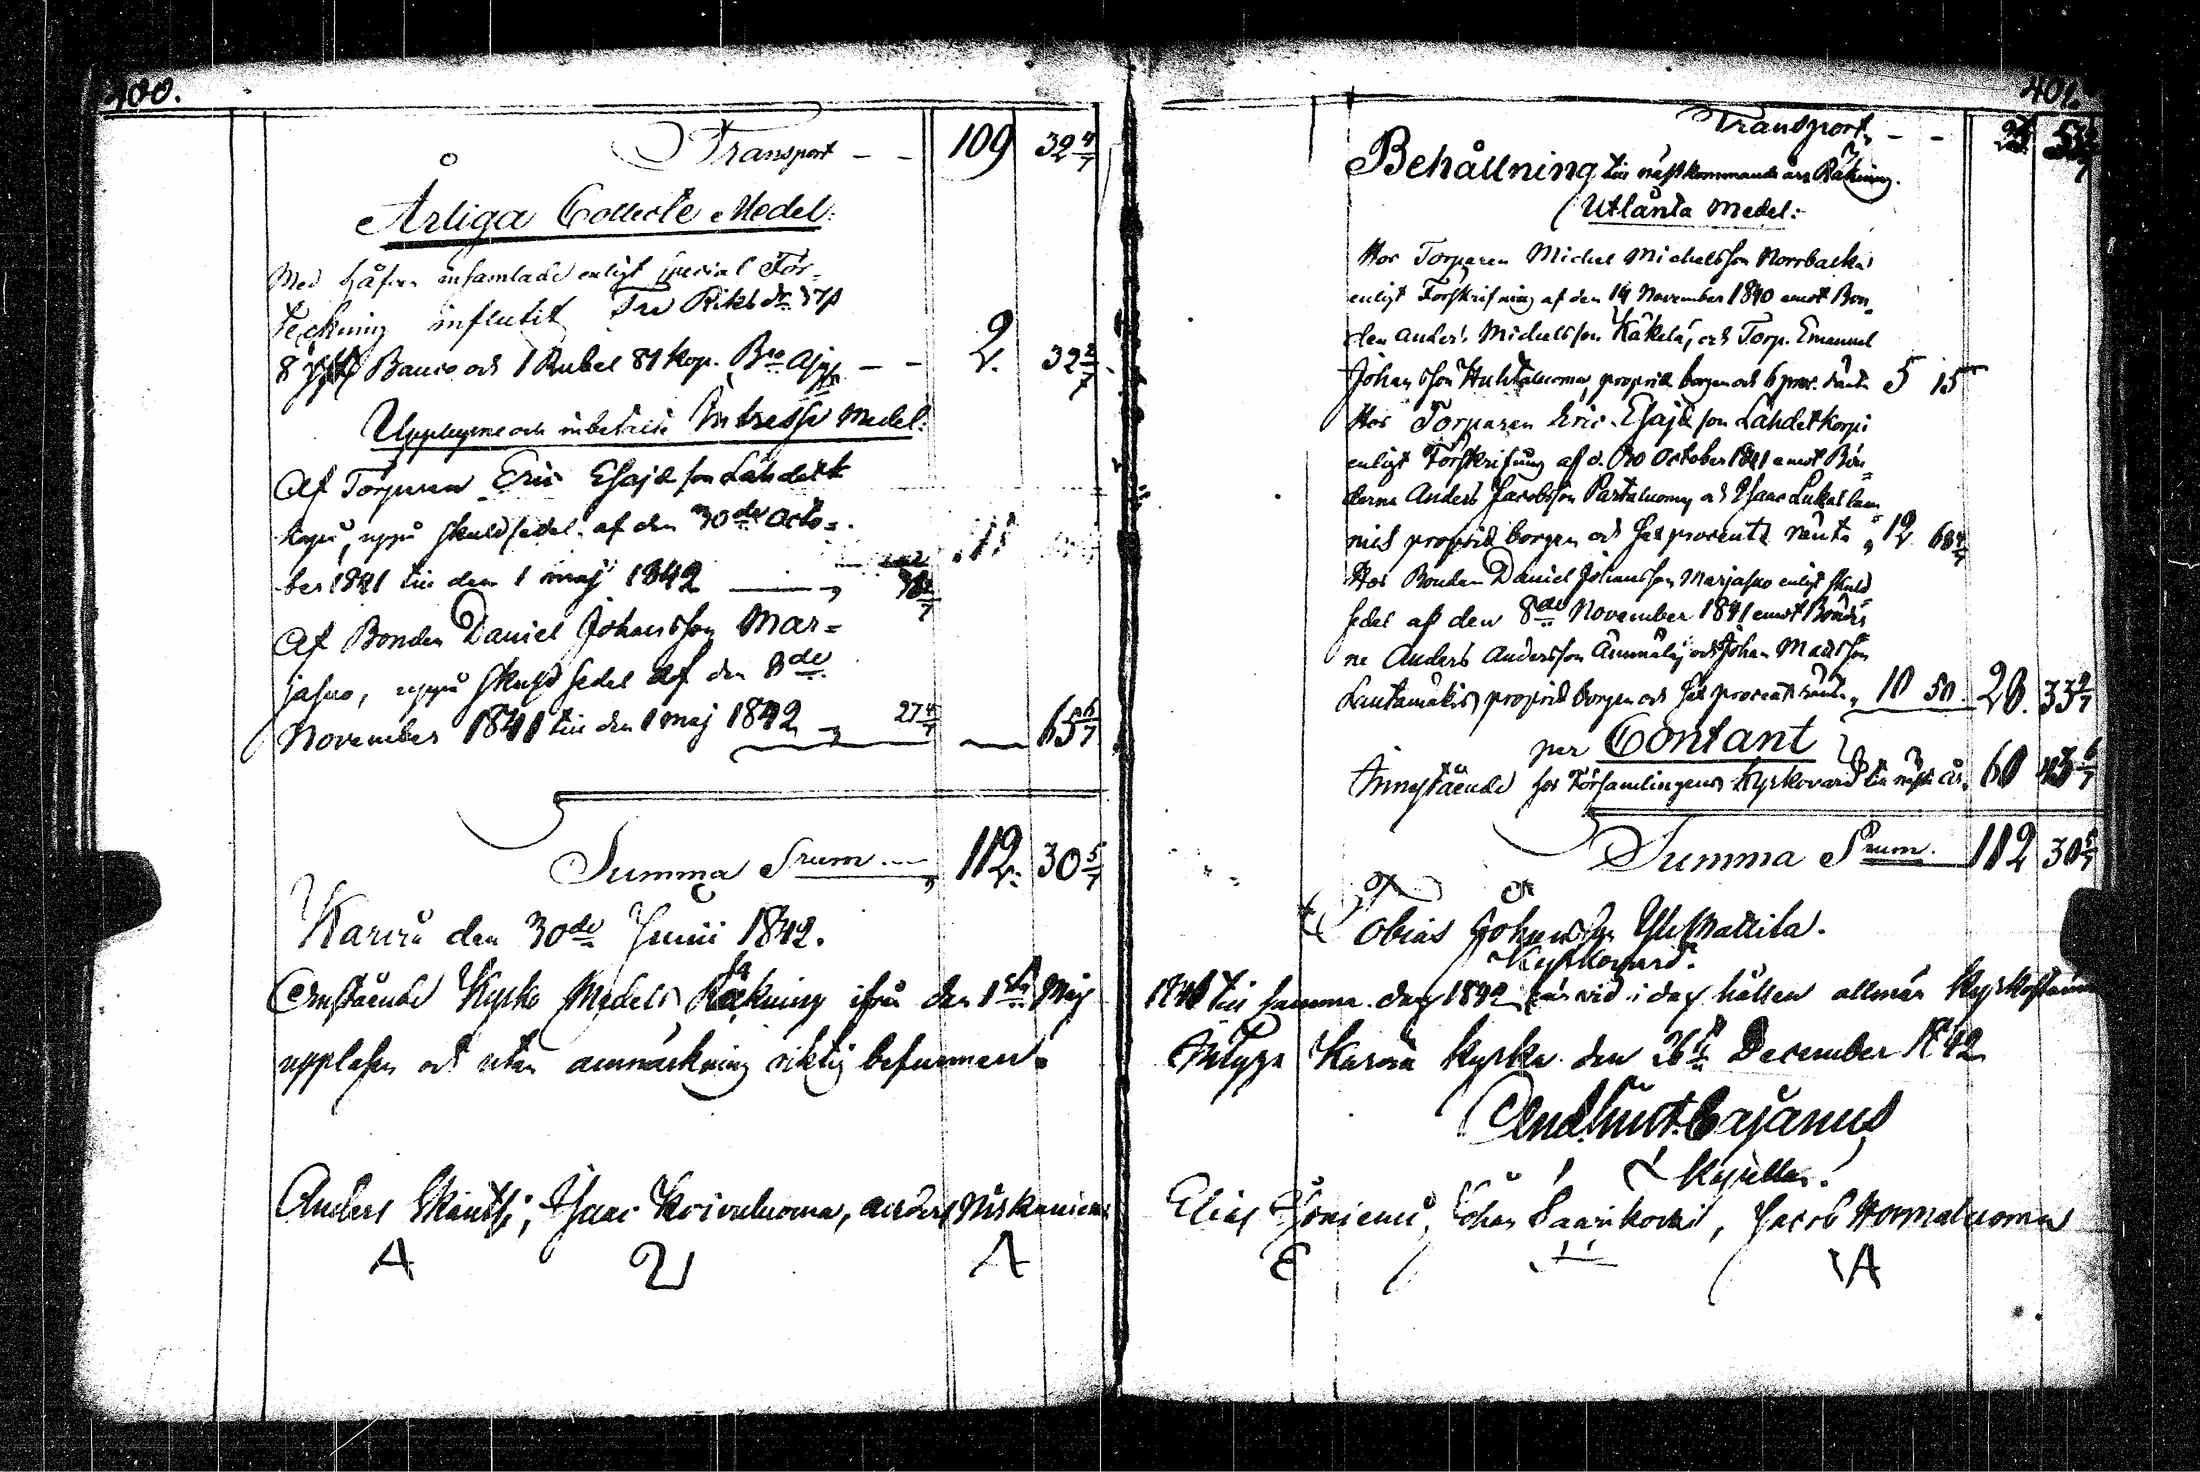 400.
Transport – – 109 32 4/7
Årliga Collecte Medel:
Med håfven insamlade enligt special För-
teckning influtit Tre Riksdr 37 s
8 Banco och 1 Rubel 81 kop. Bco Assgr – – 2. 32 2/7
Upplupne och inbetalte Intresse Medel:
Af Torparen Eric Esajesson Lähdet
korpi, uppå skuldsedel af den 30de Octo-
ber 1841 till den 1 maj 1842 — 38 2/7
Af Bonden Daniel Johansson Mar-
jasuo, uppå Skuldsedel af den 8de
November 1841 till den 1 maj 1842 — 27 4/7 — 65 6/7
Summa Srum — 112. 30 5/7
Karvia den 30de Junii 1842.
Omstående Kyrko Medels Räkning ifrån den 1sta Maj
uppläsen och utan anmärkning riktig befunnen.
Anders Skantsi, Isaac Koivuluoma, Anders Niskaniemi
A 2 A
401.
Transport – –
Behållning till nästkommande års Räkning.
Utlånta Medel:
Hos Torparen Michel Michelsson Norrbacka
enligt Förskrifning af den 14 November 1840 emot Bon-
den Anders Michelsson Käkelä, och Torp. Emanuel
Johansson Huhtaluoma, proprie borgen och 6 proc. ränta 5 15
Hos Torparen Eric Esajesson Lähdetkorpi
enligt Förskrifning af d. 30 October 1841 emot Bön-
derne Anders Jacobsson Partaluoma och Isaac Lukaslam
mis proprie borgen och sex procents ränta „ 12 68 4/7
Hos Bonden Daniel Johansson Marjasuo enligt skuld
sedel af den 8de November 1841 emot Bönder
ne Anders Andersson Ämmälä och Johan Matsson
Lautamäkis proprie borgen och sex procents ränta „ 10 50. 28. 33 4/7
per Contant
Innestående hos Församlingens Kyrkovärd till nästa år. 60 43 6/7
Summa Srum. 112 30 5/7
Tobias Johansson YliMattila.
Kyrkovärd.
1841 till samma dag 1842 här vid i dag hållen allmän Kyrkostämma
Intyga Karvia kyrka den 26te December 1842
And. Cajanus
Kapellan.
Elias Johan Saarikoski, Jacob Hormaluoma
E A